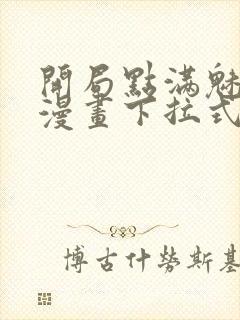 開局點滿魅
漫畫下拉式
博古什勞斯基